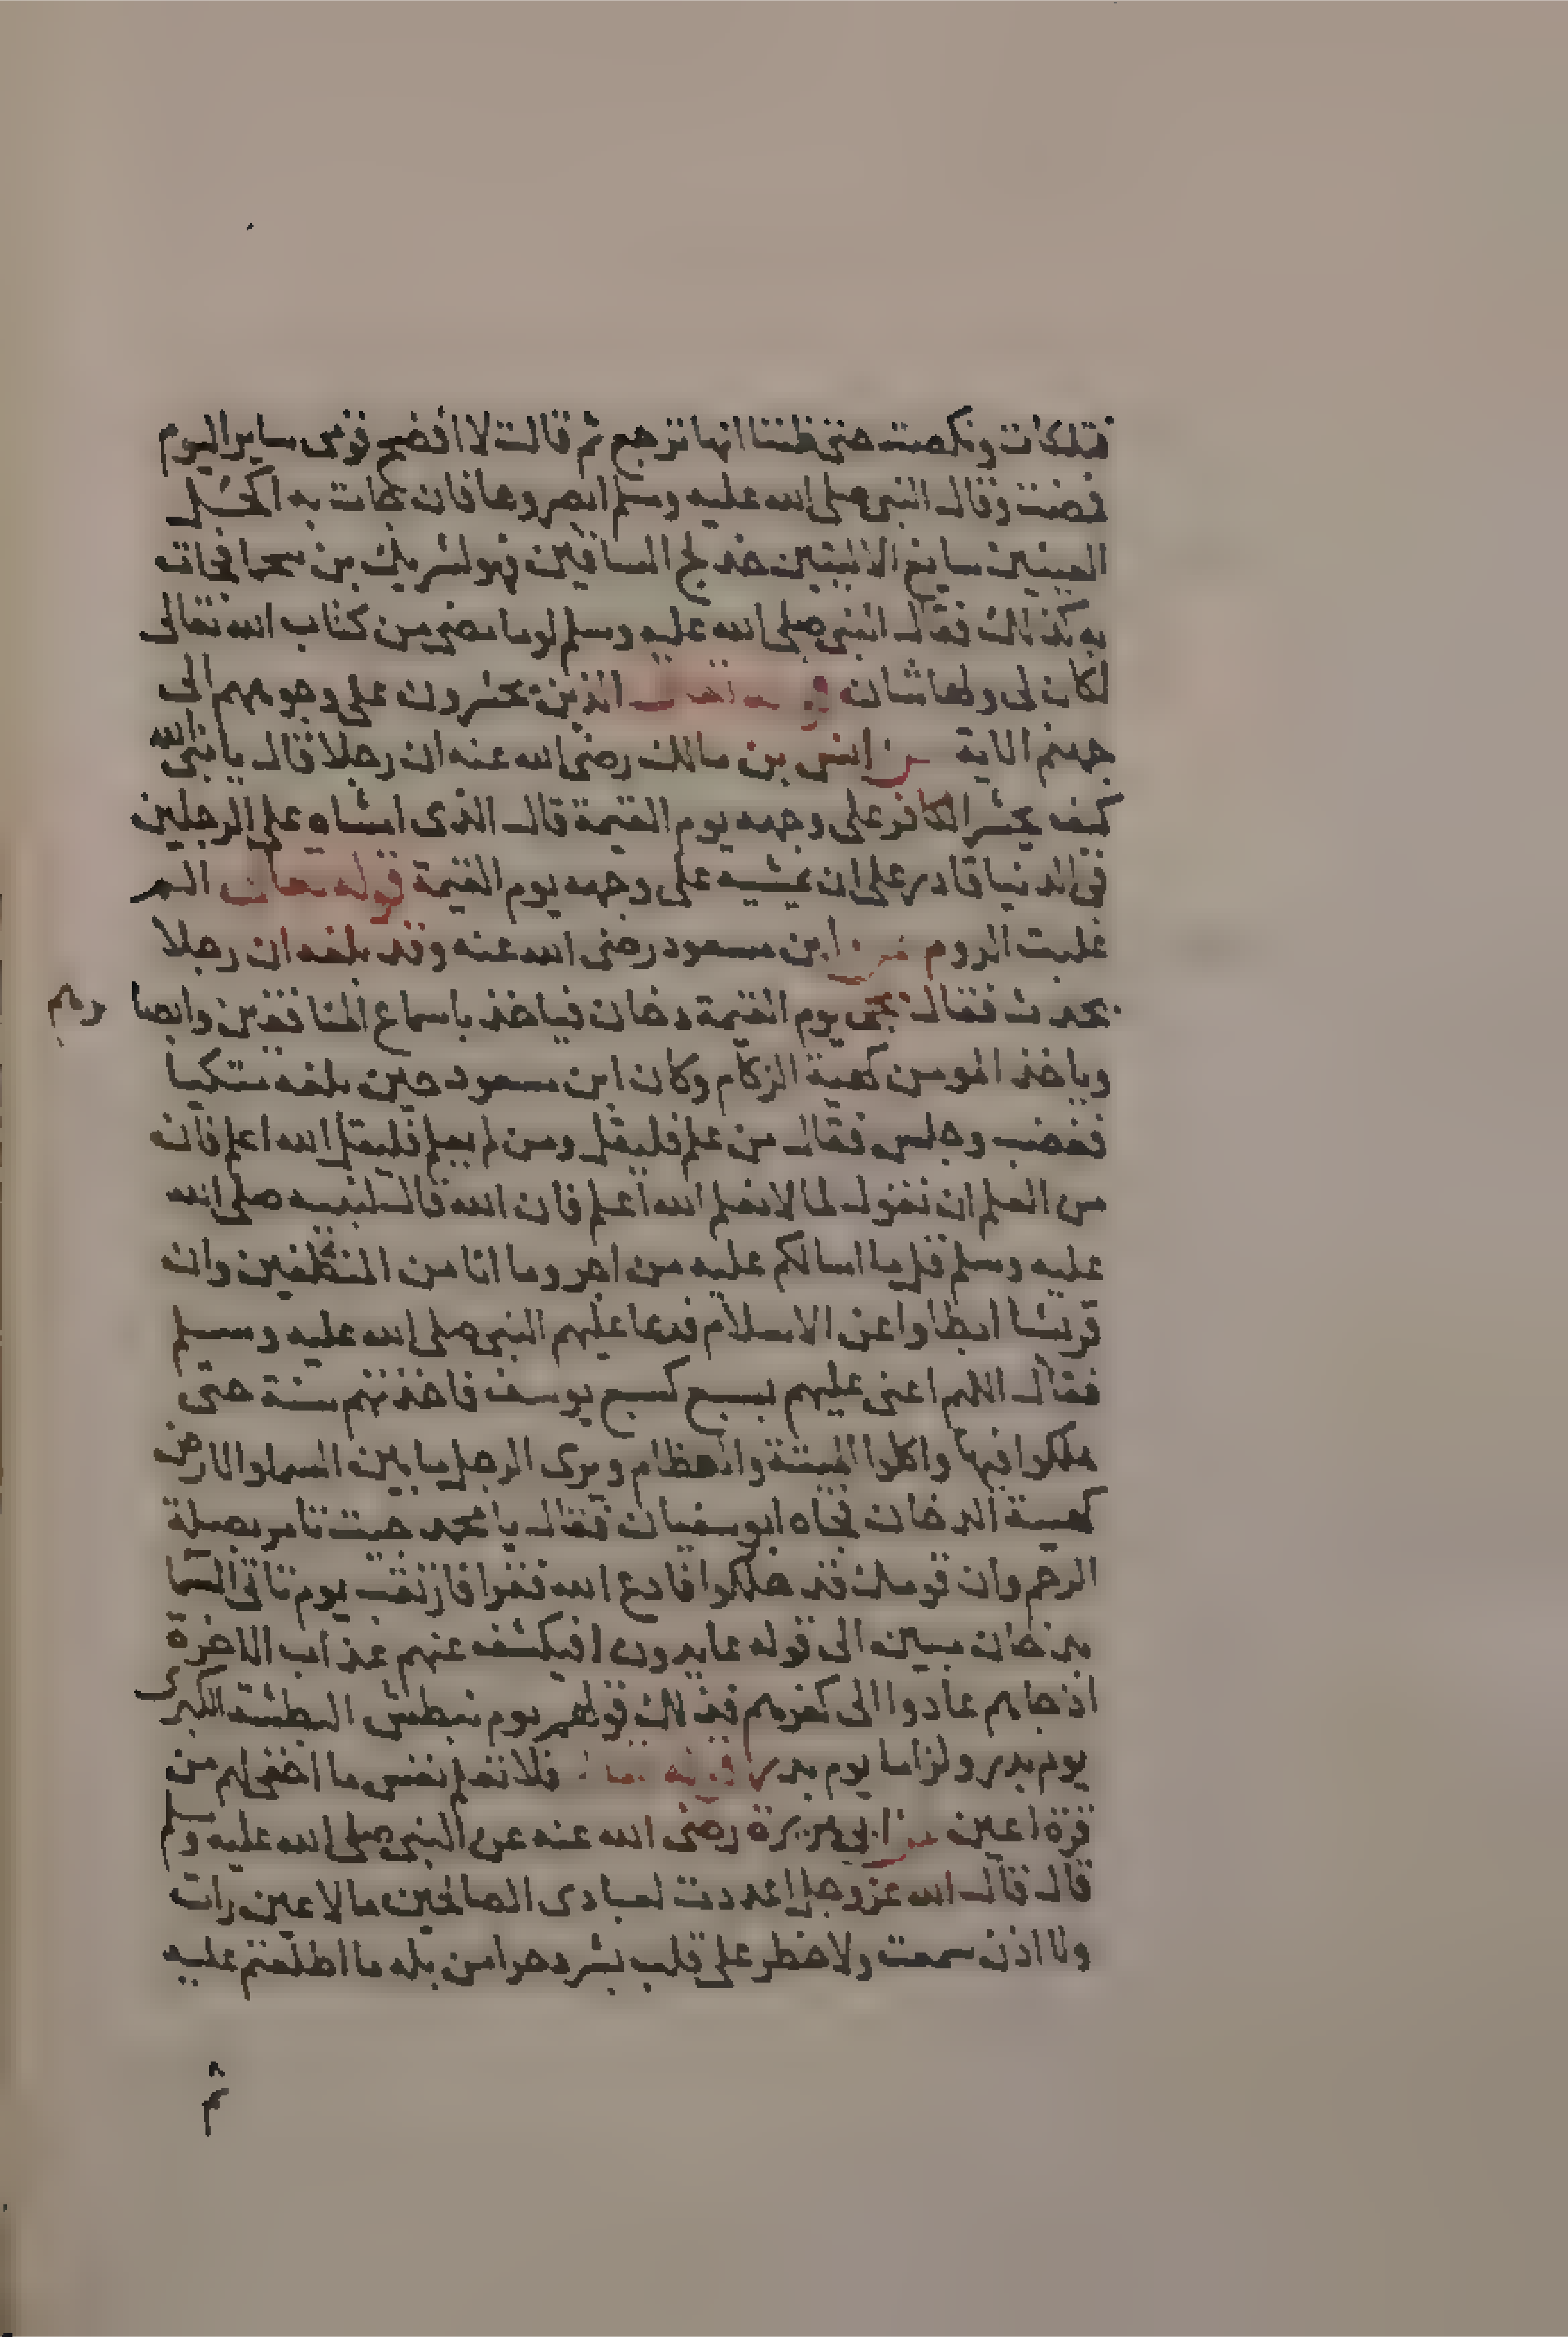 فتلكات ونكصت حتى ظننا انها ترجع ثم قالت لا افضح قومى ساير اليوم
فمضت وقال النبى صلى الله عليه وسلم ابصروها فان جات به اكحل
العينين سابغ الاليتين خدلج الساقين فهو لشريك بن سحما فجات
به كذلك فقال النبى صلى الله عليه وسلم لولا ما مضى من كتاب الله تعالى
لكان لى ولها شان قوله تعالى الذين يحشرون على وجوههم الى
جهنم الاية عن انس بن مالك رضى الله عنه ان رجلا قال يا نبى الله
كيف يحشر الكافر على وجهه يوم القيمة قال الذى امشاه على الرجلين
فى الدنيا قادر على ان يمشيه على وجهه يوم القيمة قوله تعالى الم
غلبت الروم عن ابن مسعود رضى الله عنه وقد بلغه ان رجلا
يحدث فقال يجى يوم القيمة دخان فياخذ باسماع المنافقين وابصا رهم
وياخذ المومن كهية الزكام وكان ابن مسعود حين بلغه متكيا
فغضب وجلس فقال من علم فليقل ومن لم يعلم فليقل الله اعلم فان
من العلم ان تقول لما لا تعلم الله اعلم فان الله قال لنبيه صلى الله
عليه وسلم قل ما اسالكم عليه من اجر وما انا من المتكلفين وان
قريشا ابطاوا عن الاسلام فدعا عليهم النبى صلى الله عليه وسلم
فقال اللهم اعنى عليهم بسبع كسبع يوسف فاخذتهم سنة حتى
هلكوا فيها واكلوا الميتة والعظام ويرى الرجل ما بين السما والارض
كهيية الدخان فجاه ابو سفيان فقال يا محمد جيت تامر بصلة
الرحم وان قومك قد هلكوا فادع الله فقرا فارتقب يوم تاتى السما
بدخان مبين الى قوله عايدون افيكشف عنهم عذاب الاخرة
اذ جاهم عادوا الى كفرهم فذلك قولهم يوم نبطش البطشة الكبرى
يوم بدر ولزاما يوم بدر قوله تعالى فلا تعلم نفس ما اخفى لهم من
قرة اعين عن ابى هريرة رضى الله عنه عن النبى صلى الله عليه وسلم
قال قال الله عز وجل اعددت لعبادى الصالحين ما لا عين رات
ولا اذن سمعت ولا خطر على قلب بشر دخرا من بله ما اطلعتم عليه
ثم